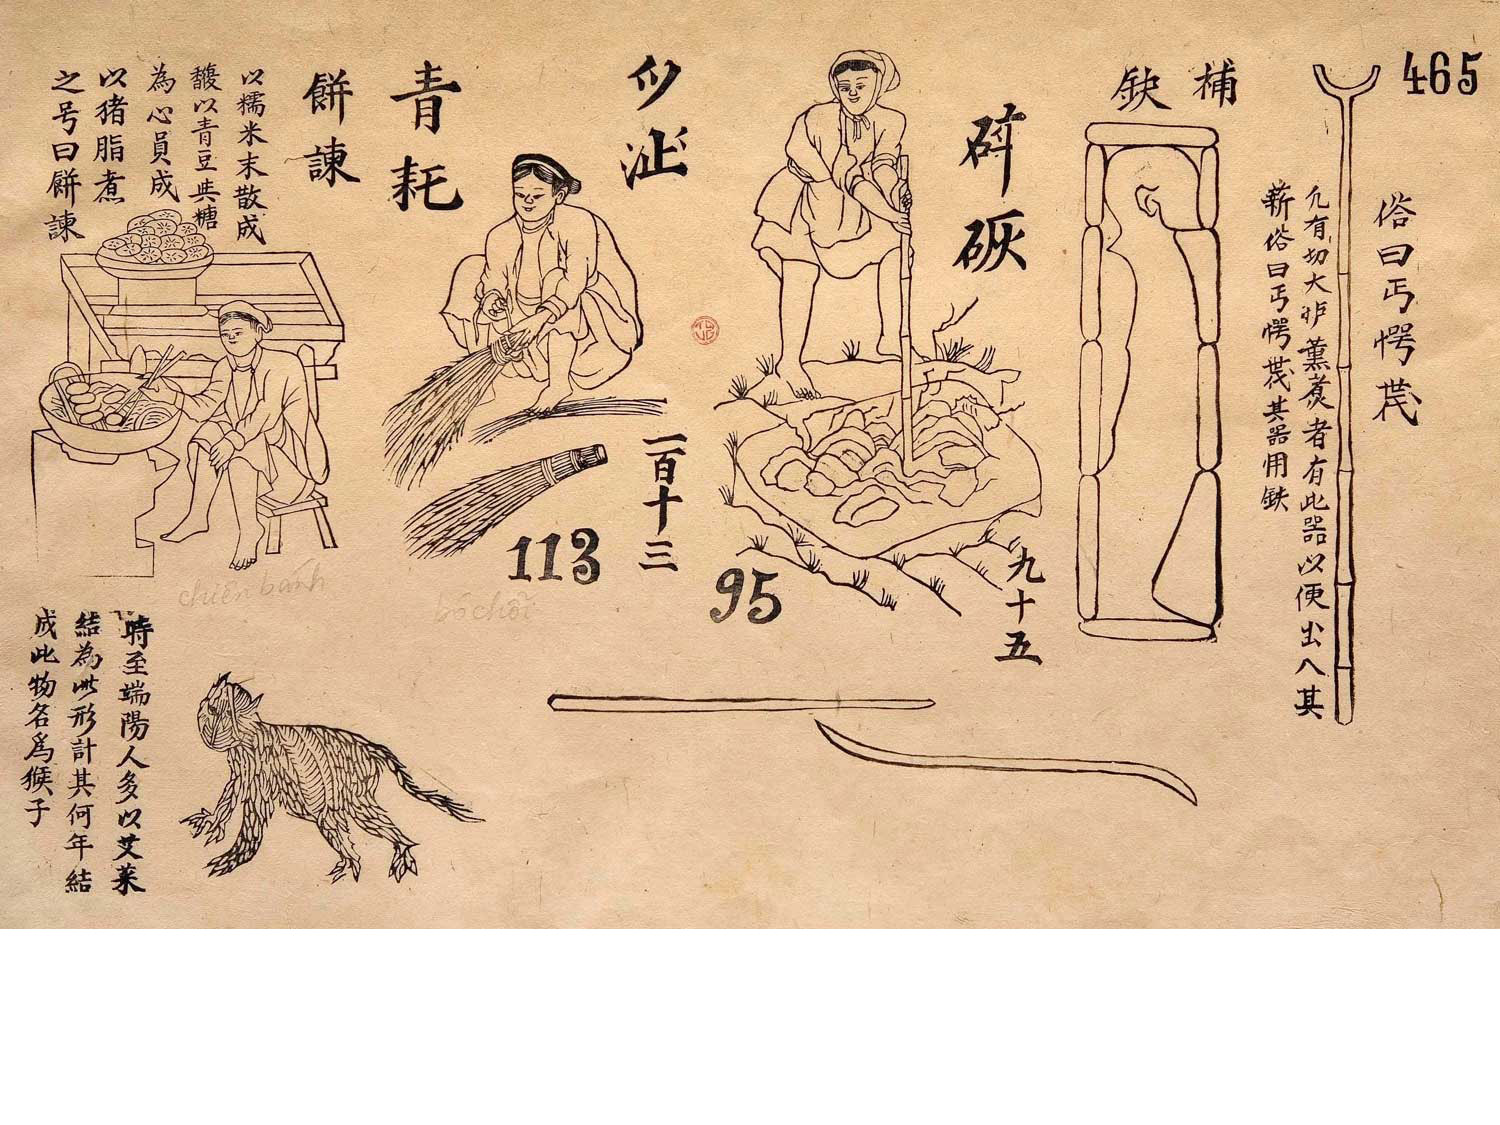 465
俗曰丐愕㦲
凢有切大炉薰𤎜者有此器以便出入其
薪俗曰丐愕㦲其器用鉄
補
鉄
碎
砍
九十五
95
一百十三
113
青
粍
餅諫
以糯米末散成
以青豆與糖
為心員成
以猪脂煮
之号曰餅諫
chiên bánh
bó chổi
時至端陽人多以艾葉
結為此形計其何年結
成此物名為猴子